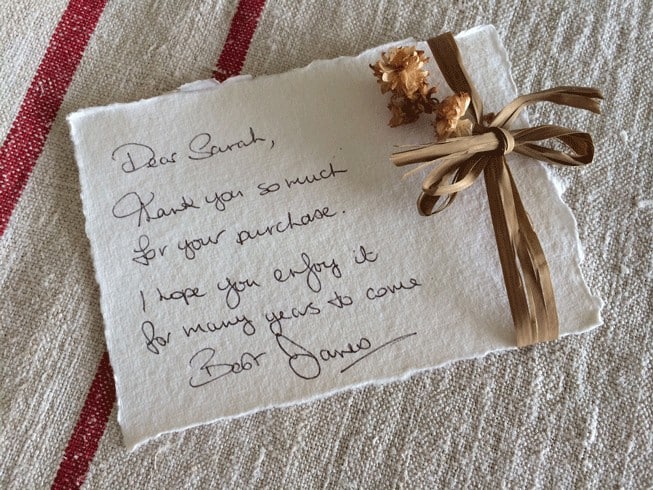 Dear Sarah,
Thank you so much
for your purchase.
I hope you enjoy it
for many years to come
Best